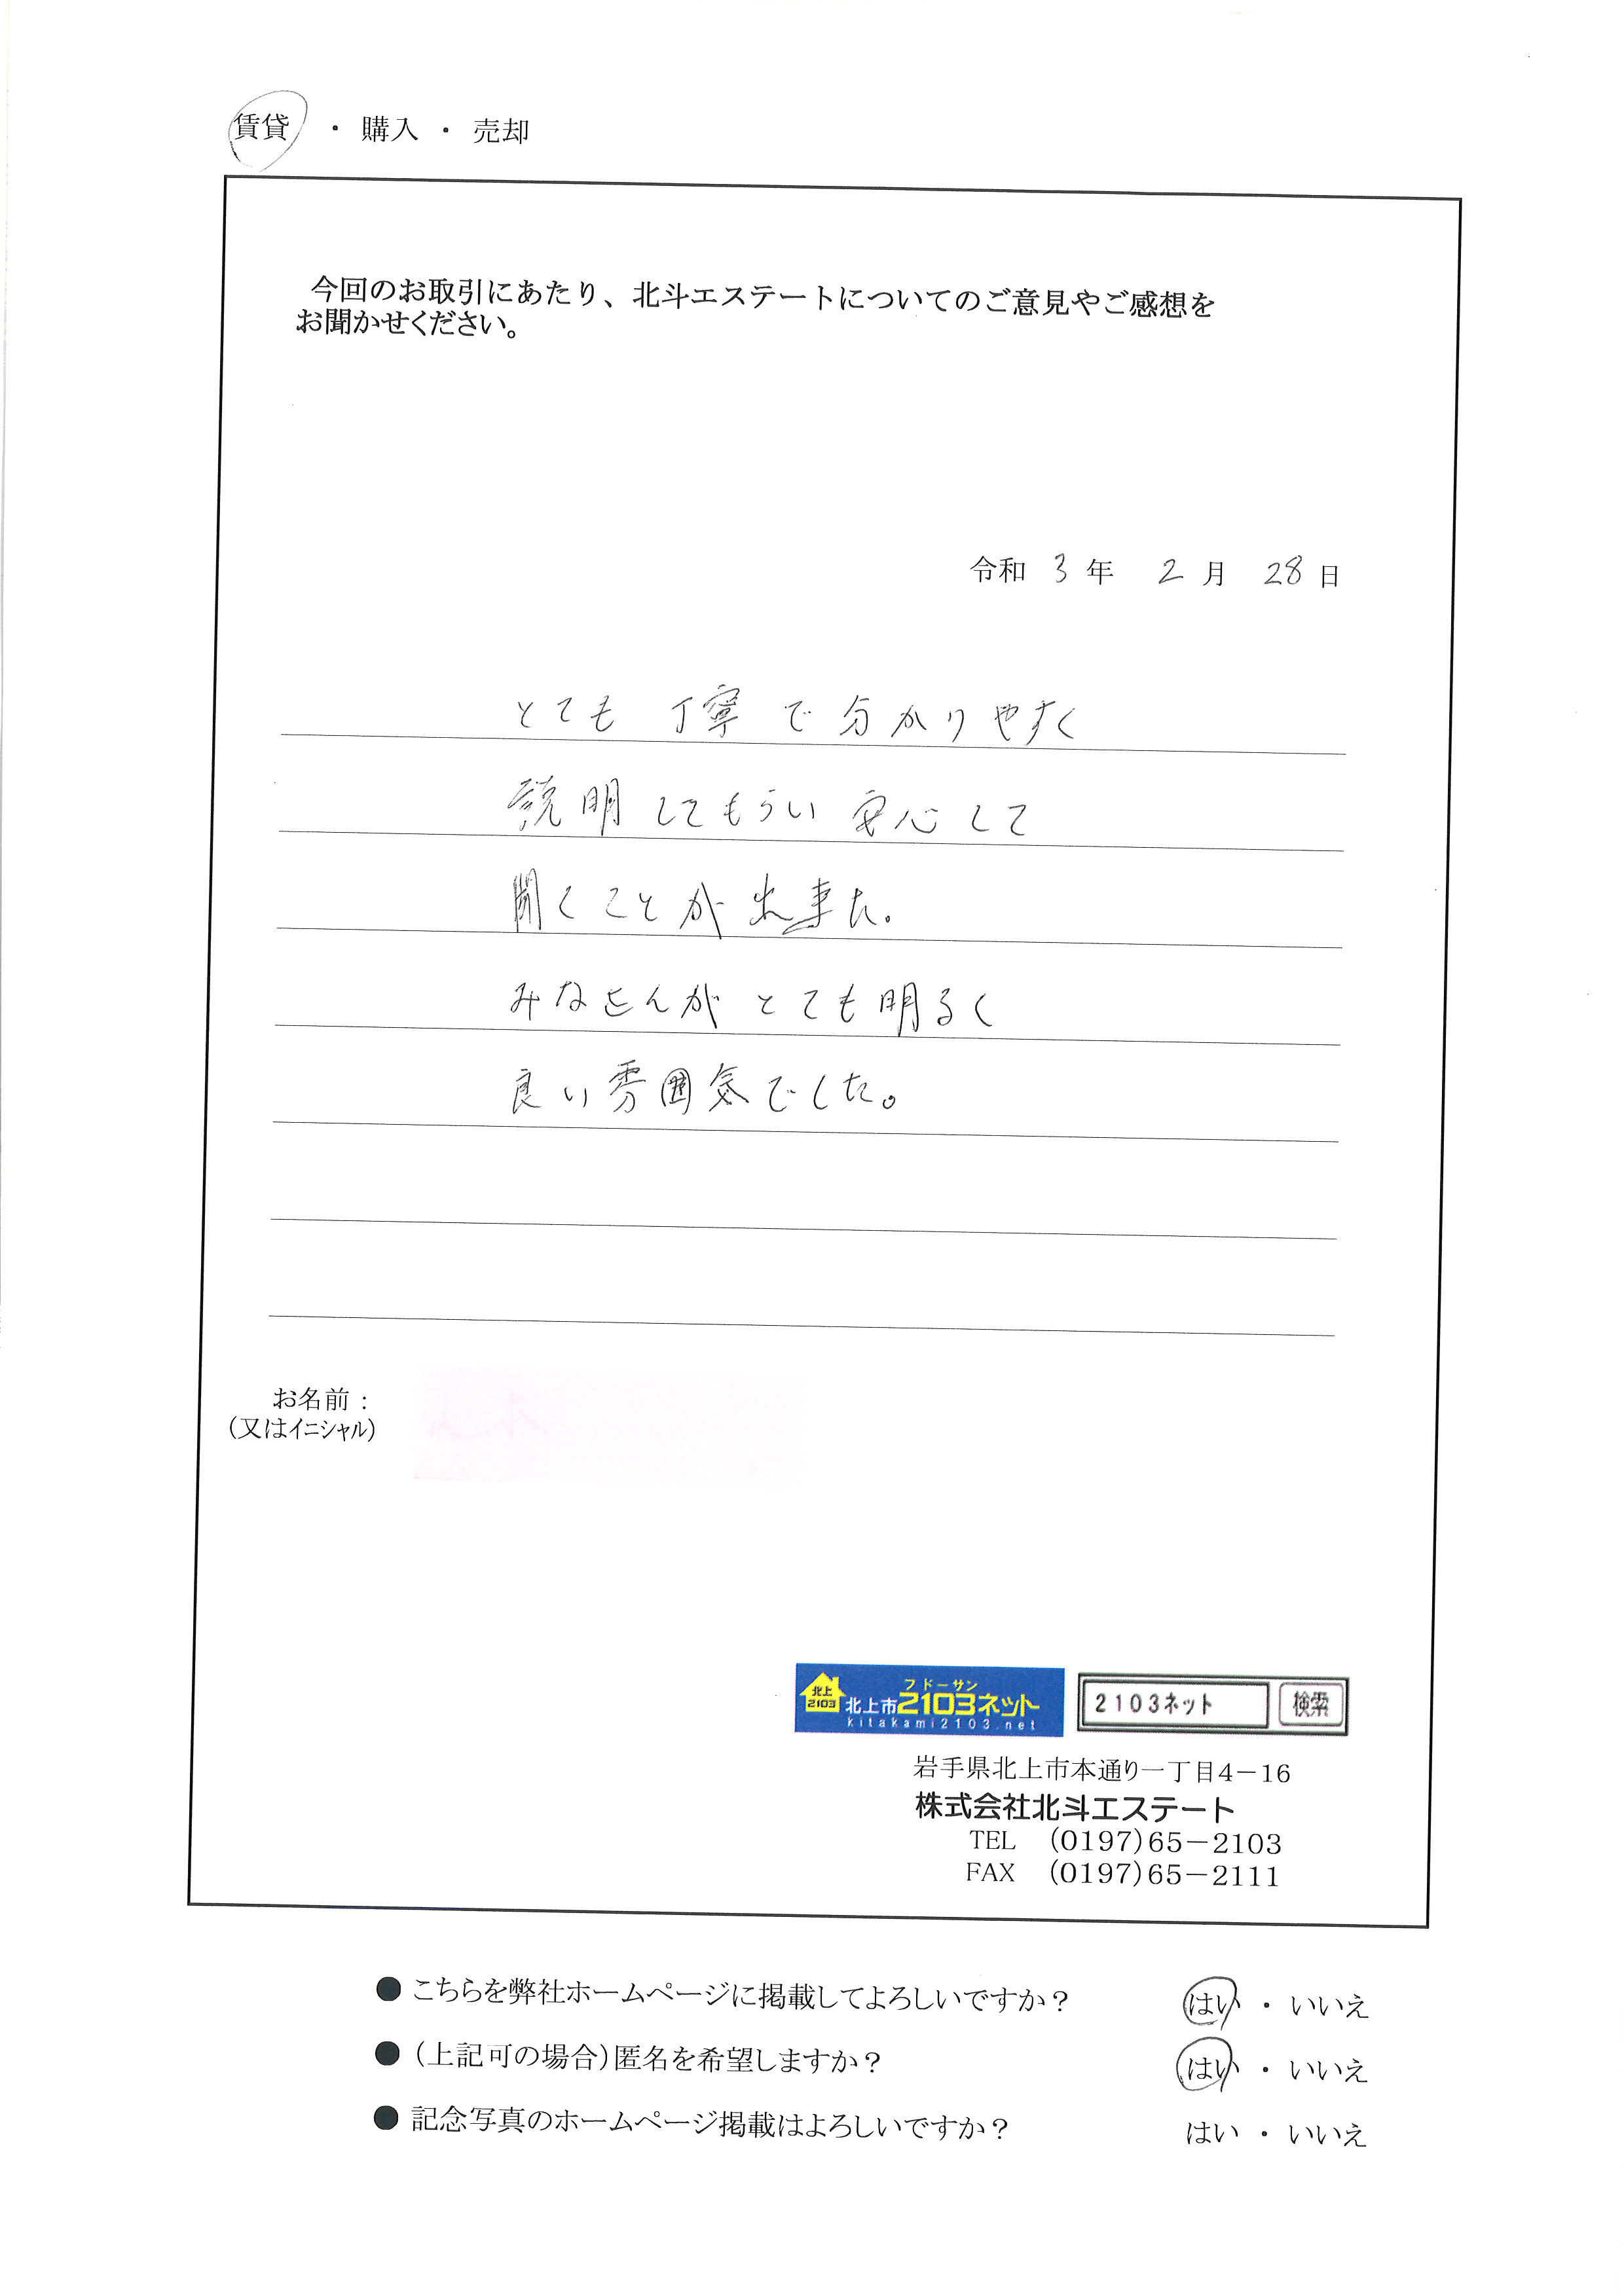 賃貸 ・ 購入 ・ 売却
今回のお取引にあたり、北斗エステートについてのご意見やご感想を
お聞かせください。
令和 3 年 2 月 28 日
とても 丁寧 で 分かりやすく
説明 してもらい 安心して
聞くことが出来た。
みなさんが とても明るく
良い雰囲気でした。
お名前：
（又はイニシャル）
北上
2103
フドーサン
北上市2103ネット
kitakami2103.net
2103ネット 検索
岩手県北上市本通り一丁目4－16
株式会社北斗エステート
TEL （0197）65－2103
FAX （0197）65－2111
● こちらを弊社ホームページに掲載してよろしいですか？ はい ・ いいえ
● （上記可の場合）匿名を希望しますか？ はい ・ いいえ
● 記念写真のホームページ掲載はよろしいですか？ はい ・ いいえ